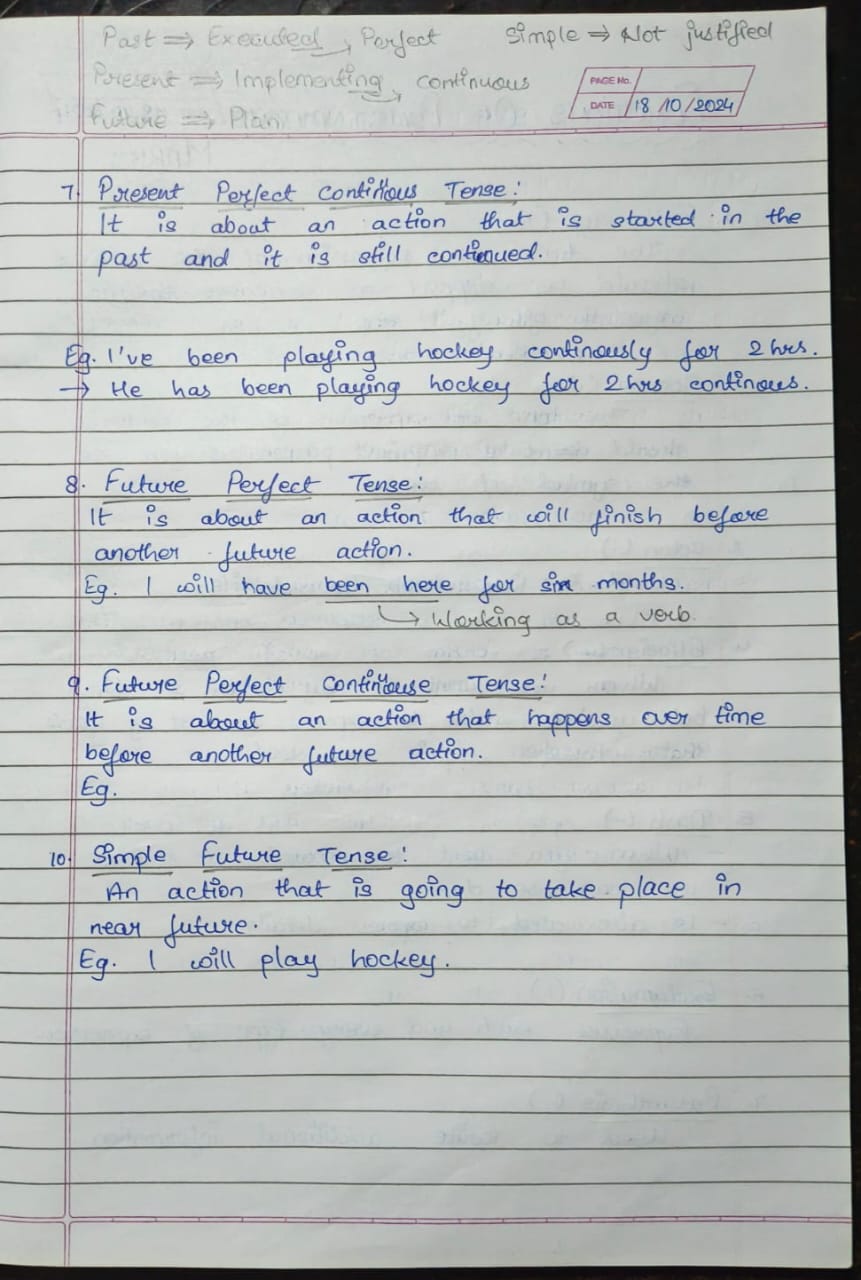 Past ⇒ Executed, Perfect Simple ⇒ Not justified
Present ⇒ Implementing, continuous
Future ⇒ Plan
PAGE No.
DATE 18/10/2024
7. Present Perfect Continous Tense:
It is about an action that is started in the
past and it is still continued.
Eg. I've been playing hockey continously for 2 hrs.
→ He has been playing hockey for 2 hrs continous.
8. Future Perfect Tense:
It is about an action that will finish before
another future action.
Eg. I will have been here for six months.
↳ Working as a verb.
9. Future Perfect Continouse Tense:
It is about an action that happens over time
before another future action.
Eg.
10. Simple Future Tense:
An action that is going to take place in
near future.
Eg. I will play hockey.